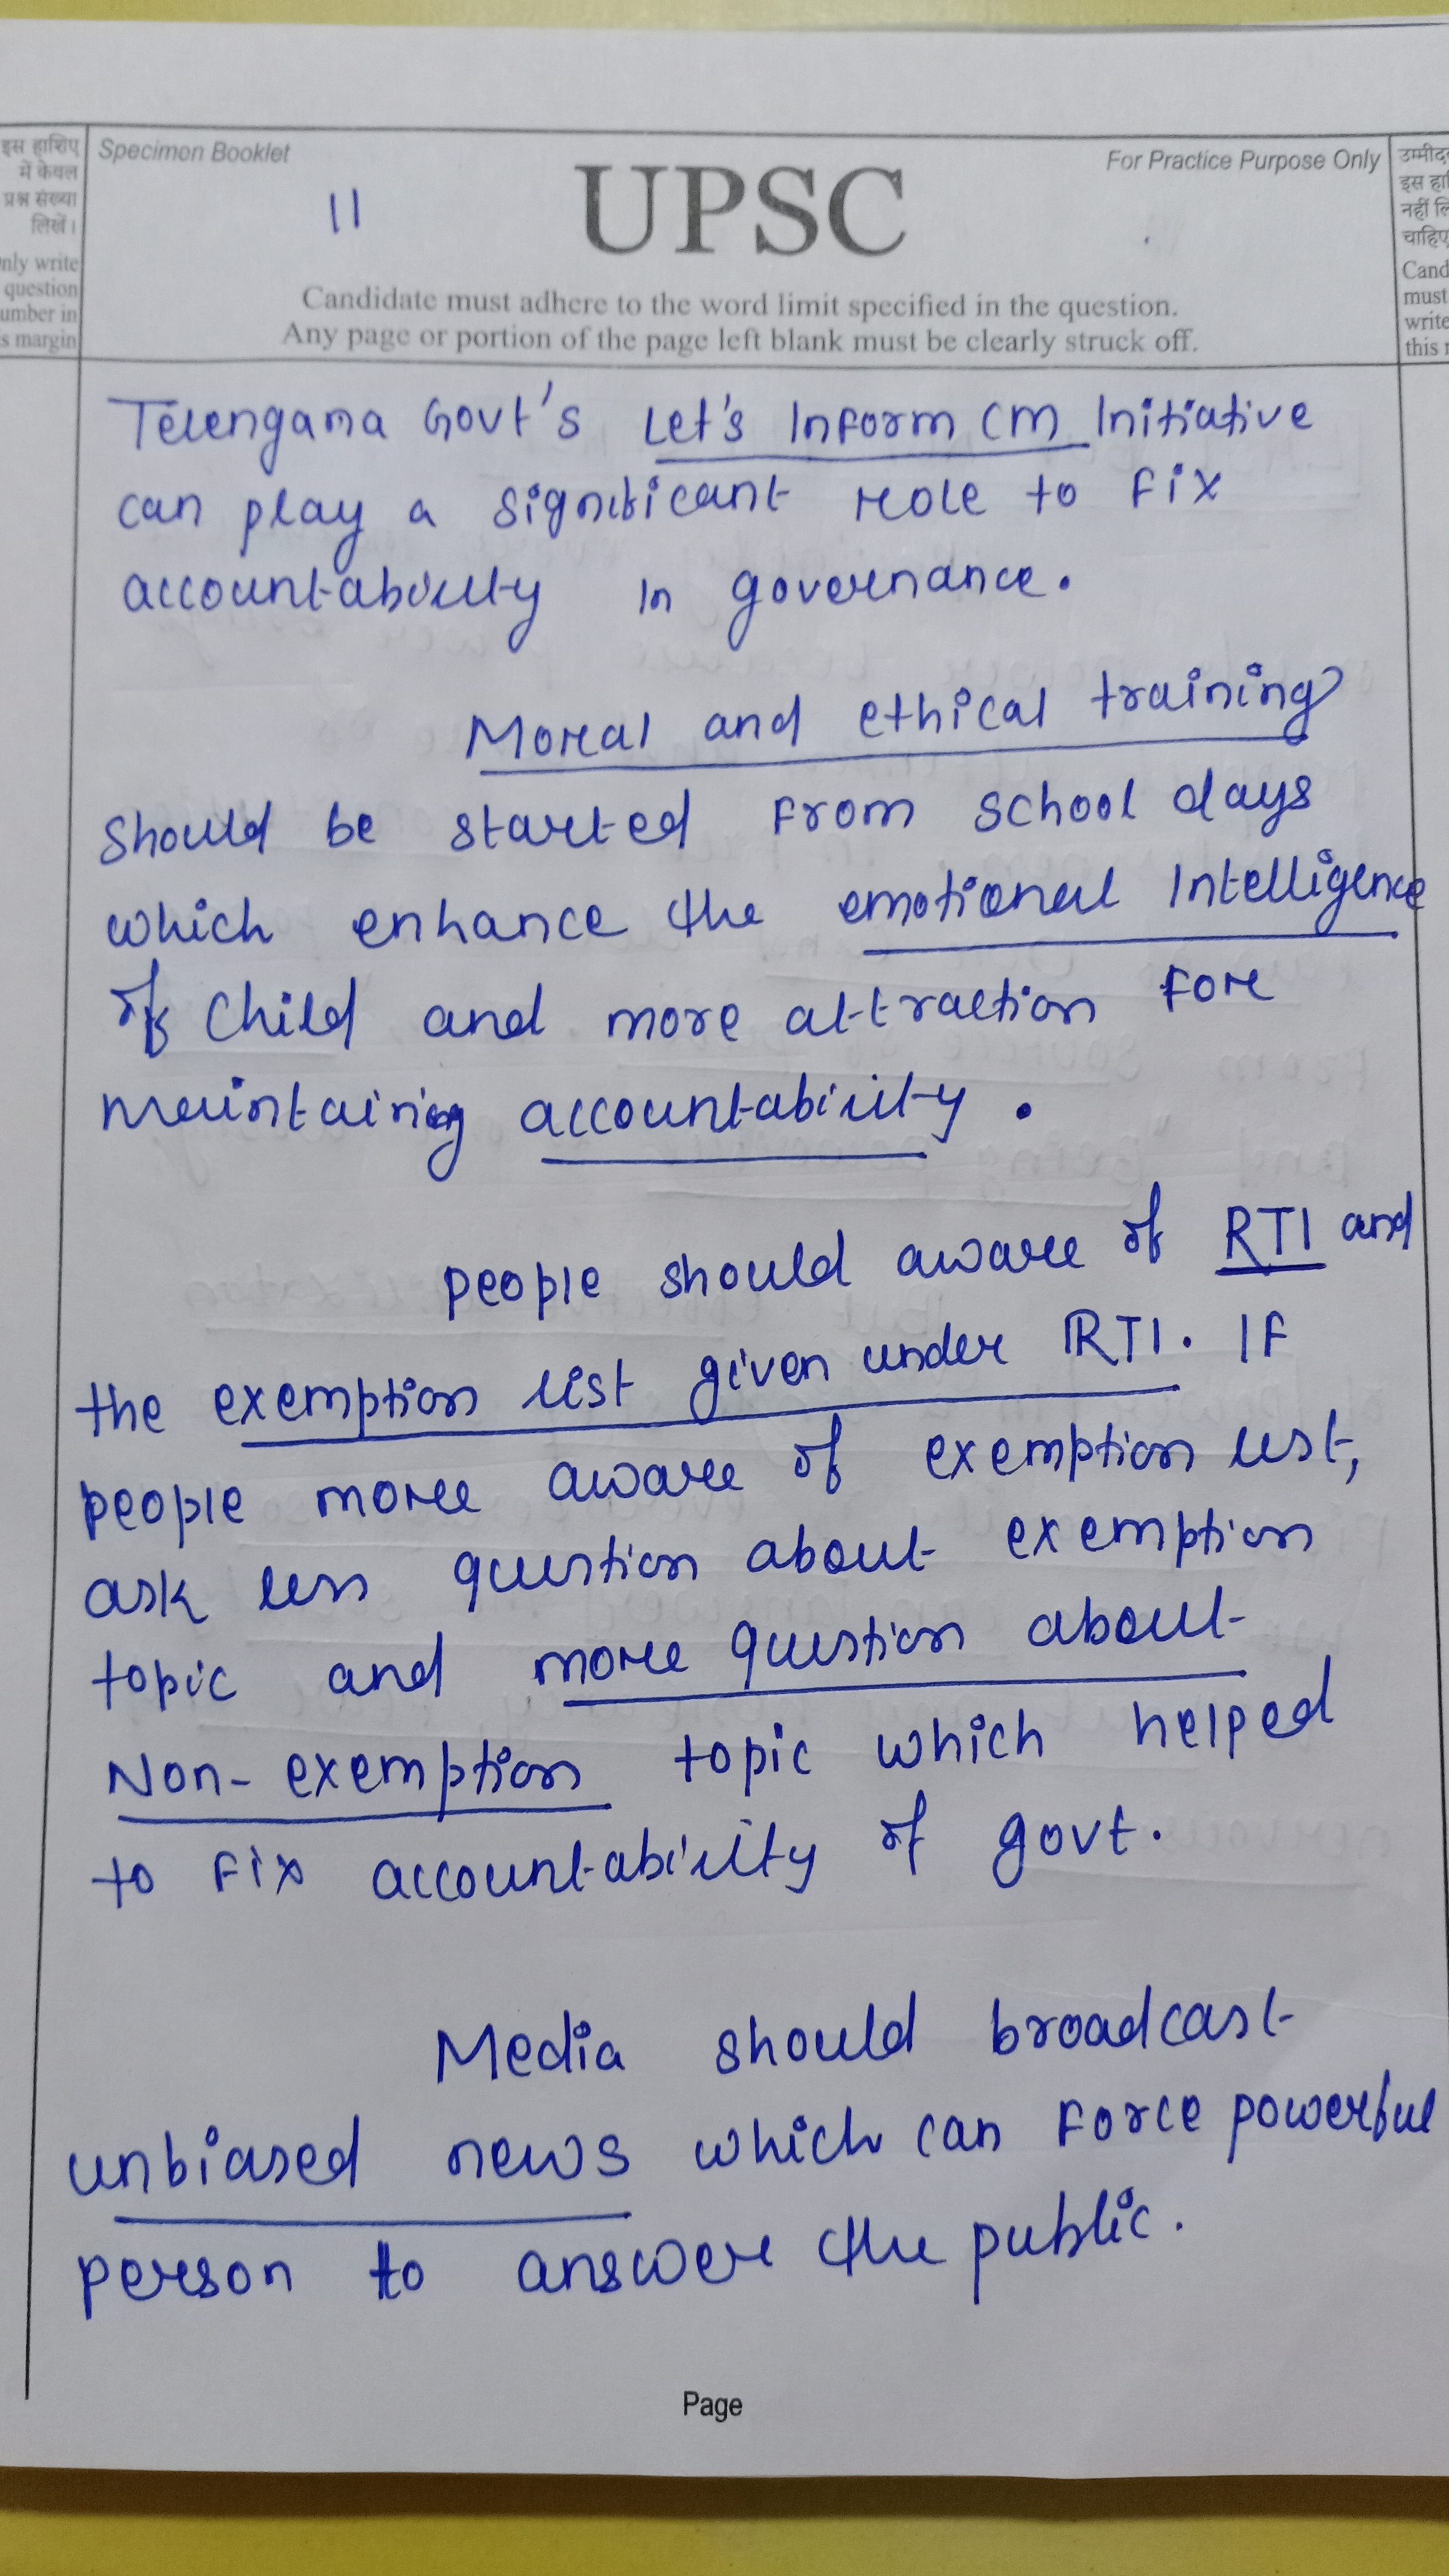 इस हाशिए
में केवल
प्रश्न संख्या
लिखें।
nly write
question
umber in
s margin
Specimen Booklet
11
UPSC
For Practice Purpose Only
Candidate must adhere to the word limit specified in the question.
Any page or portion of the page left blank must be clearly struck off.
उम्मीद
इस हा
नहीं लि
चाहिए
Cand
must
write
this
Telengana Govt's Let's Inform CM Initiative
can play a significant role to fix
accountability in governance.
Moral and ethical training
should be started from school days
which enhance the emotional Intelligence
of child and more attraction for
maintaining accountability.
people should aware of RTI and
the exemption list given under RTI. If
people more aware of exemption list,
ask less question about exemption
topic and more question about
Non-exemption topic which helped
to fix accountability of govt.
Media should broadcast
unbiased news which can force powerful
person to answer the public.
Page